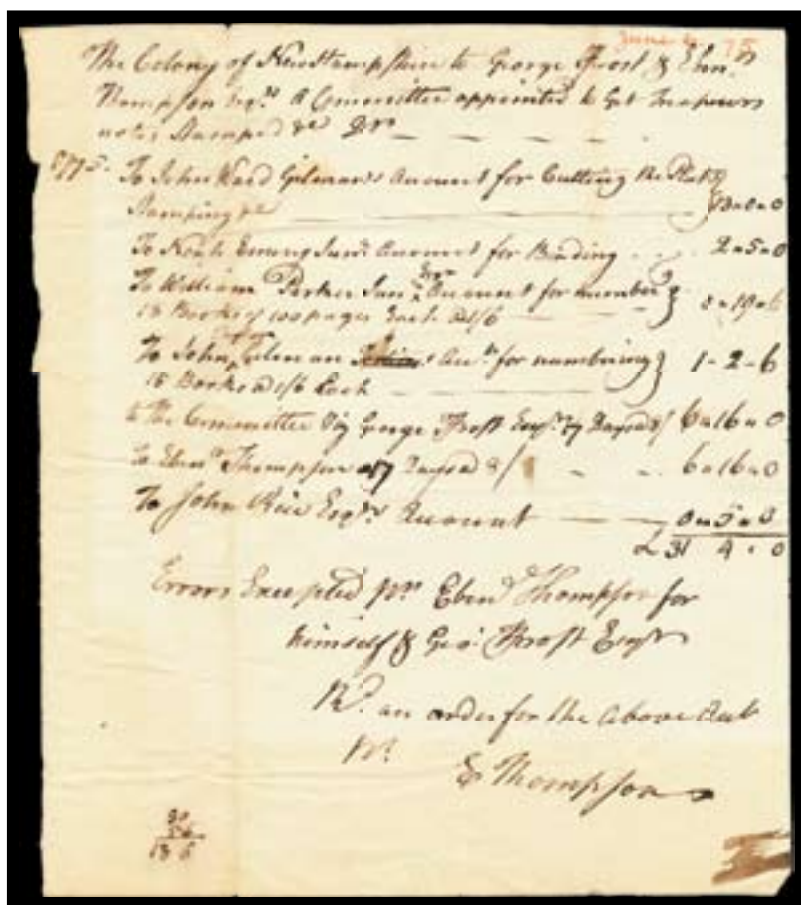 June 75
The Colony of New Hampshire to George Frost & Ebenr
Thompson Esqrs A Committee appointed to Get Treasurers
notes Stamped &c Dr
1775. To John Ward Gilman's Account for Cutting the Plate
Stamping &c 13-0-0
To Noah Emery Junr Account for Binding 2-5-0
To William Parker Junr Esqr Account for number
15 Books of 100 pages Each
To John Gilman Acct for numbering 1-2-6
15 Books a 1/6 Each
to the Committee Viz George Frost Esqr 17 Days a 8/ 6-16-0
To Ebenr Thompson 17 Days a 8/ 6-16-0
To John Rice Esqrs Account 0-5-0
£31 4-0
Errors Excepted pr Ebenr Thompson for
himself & Geo: Frost Esqr
Rd. an order for the above
pr
E Thompson